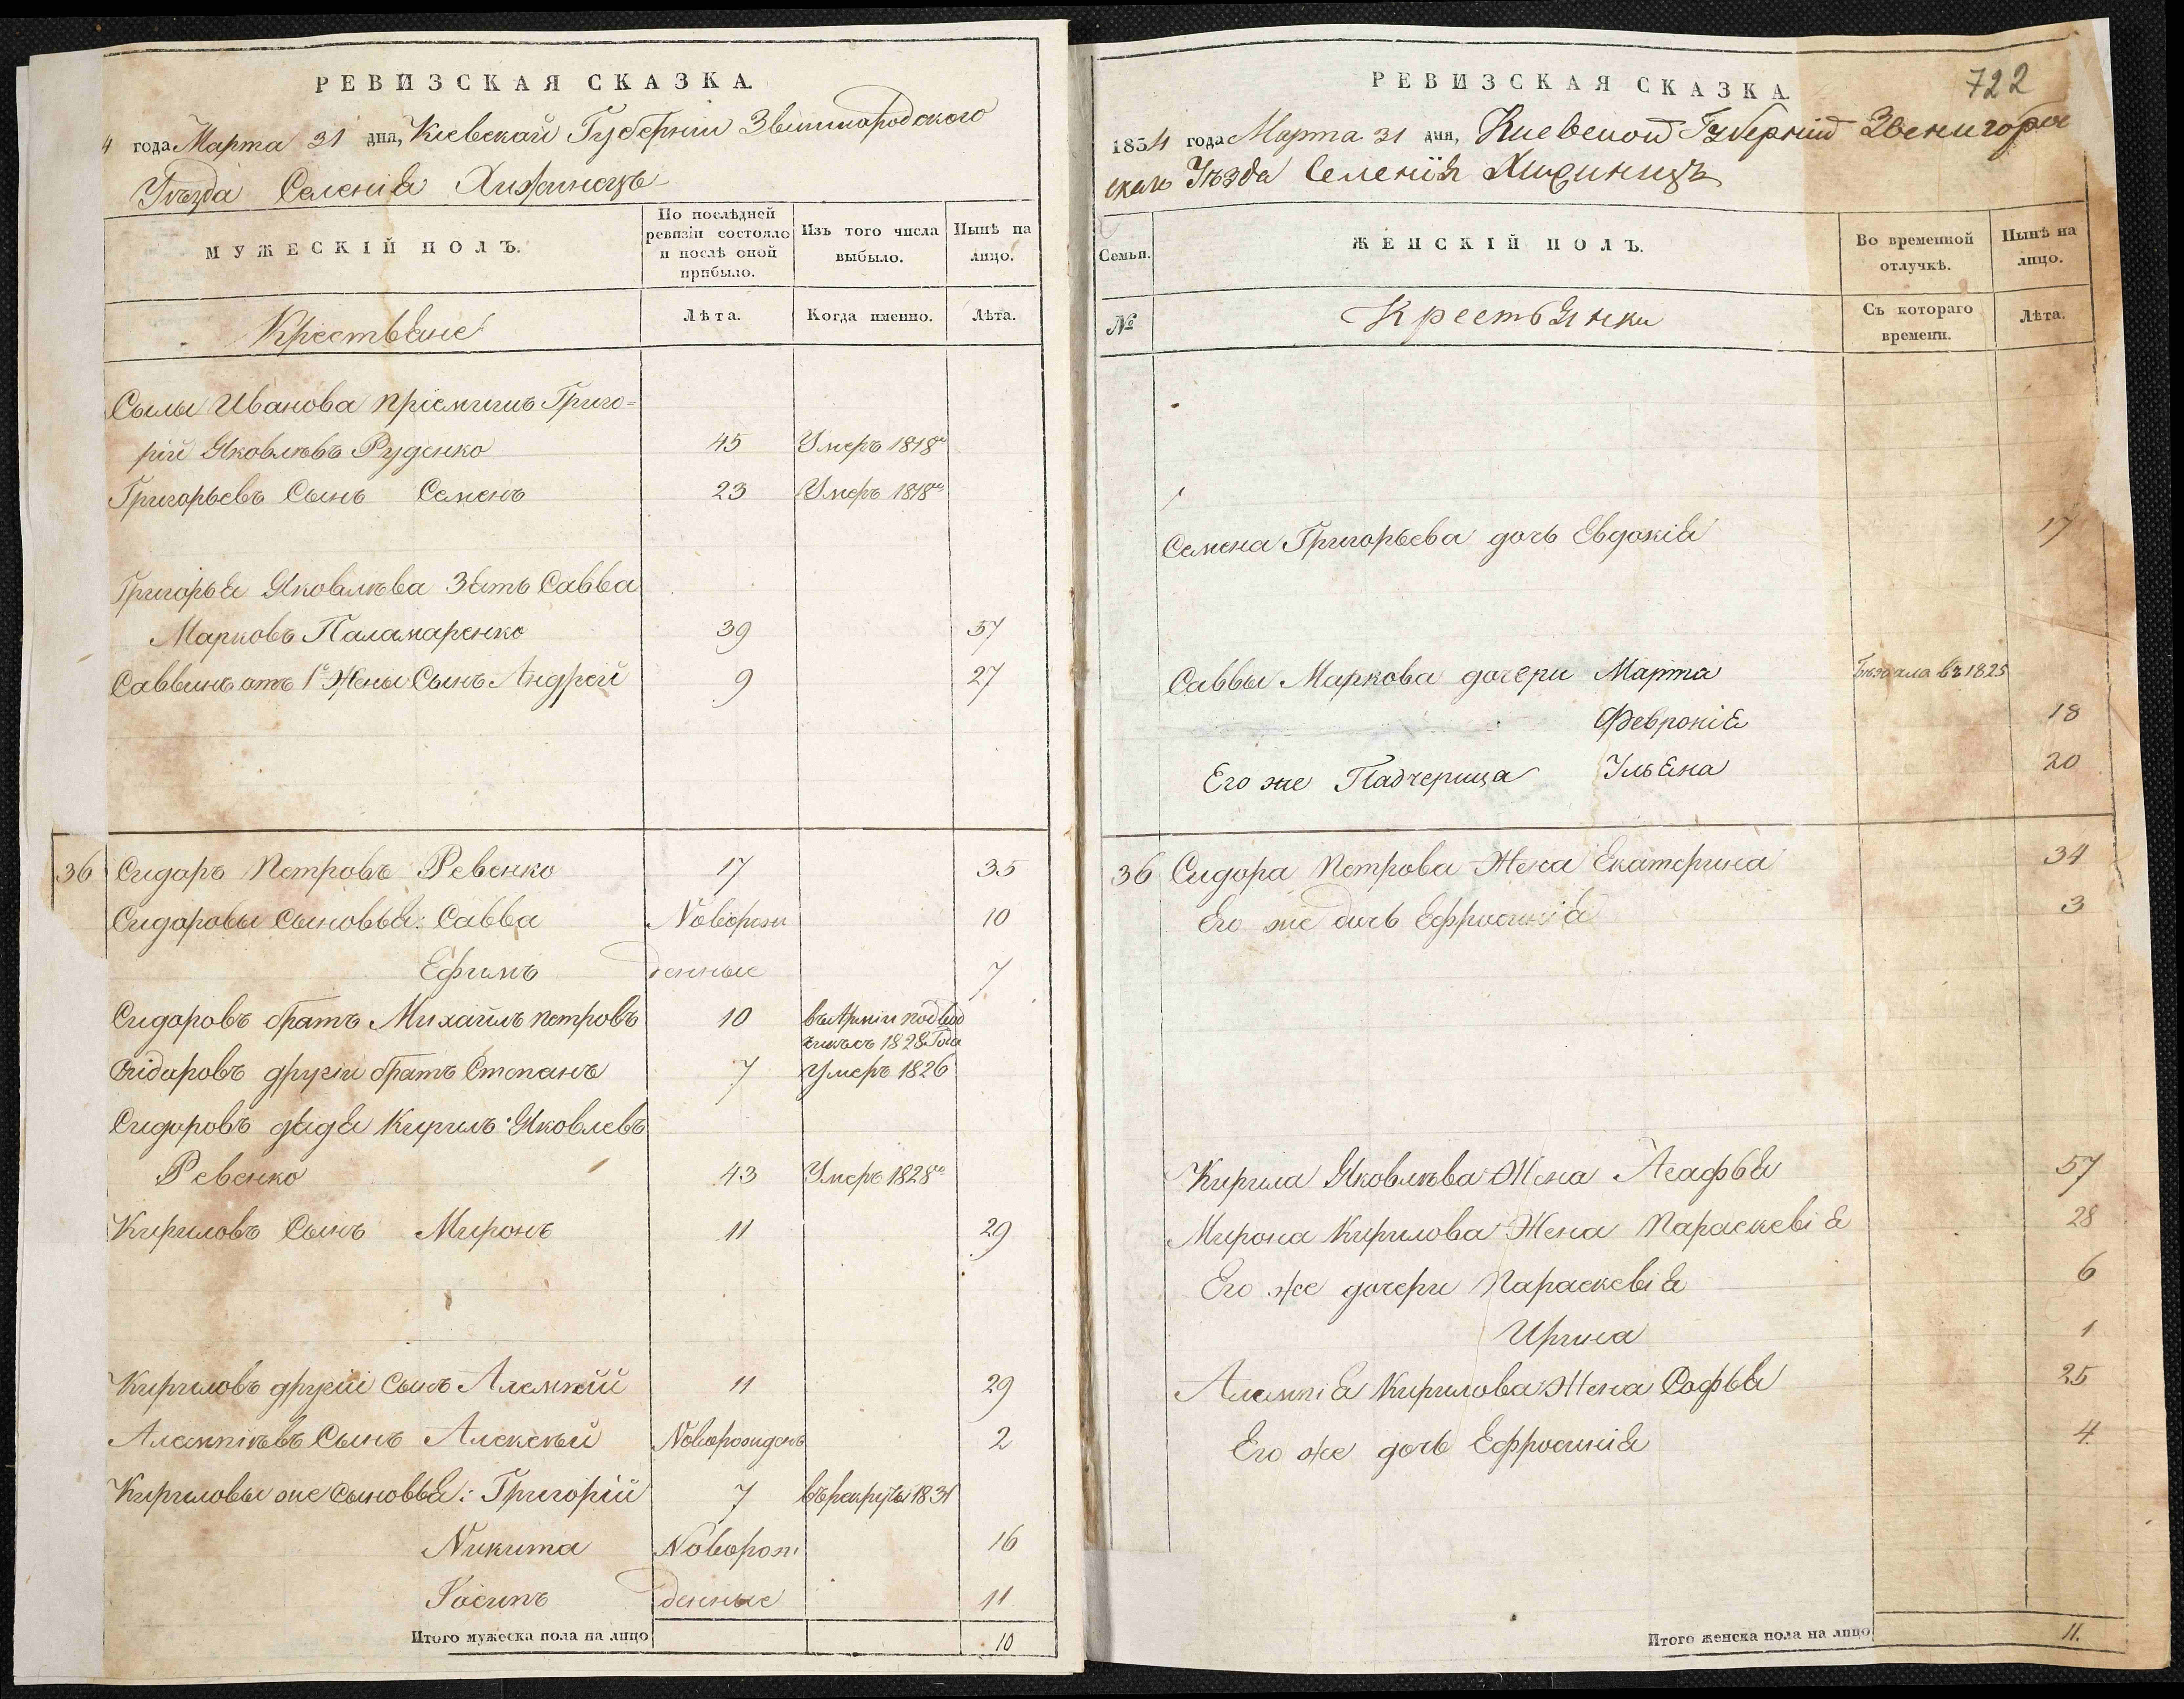 РЕВИЗСКАЯ СКАЗКА.
4 года Марта 31 дня, Кіевской Губерніи Звиногородского
Уѣзда Селенія Хижинецъ
МУЖЕСКІЙ ПОЛЪ.
По послѣдней ревизіи состояло и послѣ оной прибыло.
Изъ того числа выбыло.
Нынѣ на лицо.
Крестьяне
Лѣта.
Когда именно.
Лѣта.
Сылы Иванова пріемишъ Григо=
рій Яковлѣвъ Руденко 45 Умеръ 1818
Григорьевъ Сынъ Семенъ 23 Умеръ 1818
Григорья Яковлѣва Зять Савва
Марковъ Паламаренко 39 57
Саввинъ отъ 1й Жены Сынъ Андрей 9 27
36 Сидоръ Петровъ Ревенко 17 35
Сидоровы Сыновья: Савва Новорож 10
Ефимъ денные 7
Сидоровъ братъ Михайлъ петровъ 10 въ Арміи подвод
чикъ съ 1828 Года
Сідоровъ другіи братъ Степанъ 7 Умеръ 1826
Сидоровъ дядя Кирилъ Яковлевъ
Ревенко 43 Умеръ 1828
Кириловъ Сынъ Миронъ 11 29
Кириловъ другіи сынъ Алемпій 11 29
Алемпіѣвъ Сынъ Алексѣй Новорожденъ 2
Кириловы же сыновья: Григорій 7 въ рекруты 1831
Никита Новорож 16
Іосипъ денные 11
Итого мужеска пола на лицо 10
РЕВИЗСКАЯ СКАЗКА.
722
1834 года Марта 31 дня, Киевской Губерній Звенигоро
скаго Уѣзда Селенія Хижинецъ
Семьи.
ЖЕНСКІЙ ПОЛЪ.
Во временной отлучкѣ.
Нынѣ на лицо.
№
Крестьянки
Съ котораго времени.
Лѣта.
Семена Григорьева дочь Евдокія 17
Саввы Маркова дочери Марта Бѣжала въ 1825
Февронія 18
Его же Падчерица Ульяна 20
36 Сидора Петрова Жена Екатерина 34
Его же дочь Ефросинія 3
Кирила Яковлѣва Жена Агафья 57
Мирона Кирилова Жена Параскевія 28
Его же дочери Параскевія 6
Ирина 1
Алемпія Кирилова Жена Софья 25
Его же дочь Ефросинія 4
Итого женска пола на лицо 11.